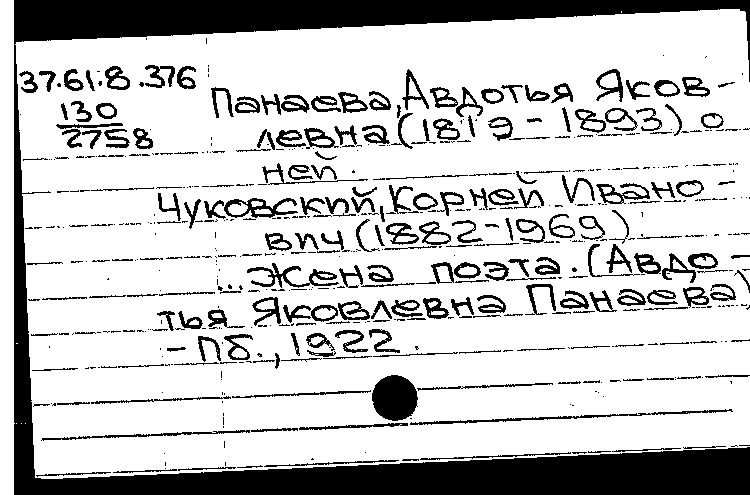 37.61.8.376
130
2758
Панаева, Авдотья Яков-
левна (1819 - 1893) о
ней.
Чуковский, Корней Ивано-
вич (1882-1969)
...Жена поэта. (Авдо-
тья Яковлевна Панаева)
- Пб., 1922.